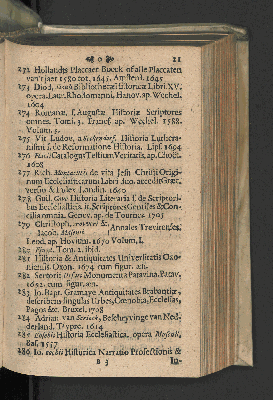 ❧ o ☙ 21
272 Hollandts Placcaet Boeck ofalle Placcaten
van't jaer 1580 tot, 1645. Amsterd. 1645
273 Diod. Siculi Bibliothecæ Historicæ Libri XV.
opera Laur. Rhodomanni. Hanov. ap. Wechel.
1604
274 Romanæ, & Augustæ Historiæ Scriptores
omnes. Tom. 3. Francf. ap. Wechel. 1588.
Volum. 3.
275 Vit Ludov. a Seckendorf, Historia Luthera-
nismi s. de Reformatione Historia. Lips. 1694
276 Catalogus Testium Veritatis, ap. Chouet.
1608
277 Rich. Montacutii de vita Jesu Christi Origi-
num Ecclesiasticarum Libri duo. accedit Græc.
versio & Index. Londin. 1640
278 Guil. Cave Historia Literaria s. de Scriptori-
bus Ecclesiasticis. it. Scriptores Gentiles & Con-
cilia omnia. Genev. ap. de Tournes. 1705
279 Christoph. Broweri &
Jacob. Masenii Annales Trevirenses,
Leod. ap. Hovium. 1670 Volum. I.
280 Tom. 2. ibid.
281 Historia & Antiquitates Universitatis Oxo-
niensis. Oxon. 1674 cum figur. æn.
282 Sertorii Monumenta Patavina. Patav.
1652. cum figur. æn.
283 Jo. Bapt. Gramaye Antiquitates Brabantiæ,
describens singulas Urbes, Cœnobia, Ecclesias,
Pagos &c. Bruxel. 1708
284 Adrian van Scrieck, Beschryvinge van Ned-
derland. T'ypre. 1614
285 Eusebii Historia Ecclesiastica, opera
Bas. 1557
286 Jo. Historica Narratio Profectionis &
B 3 In-